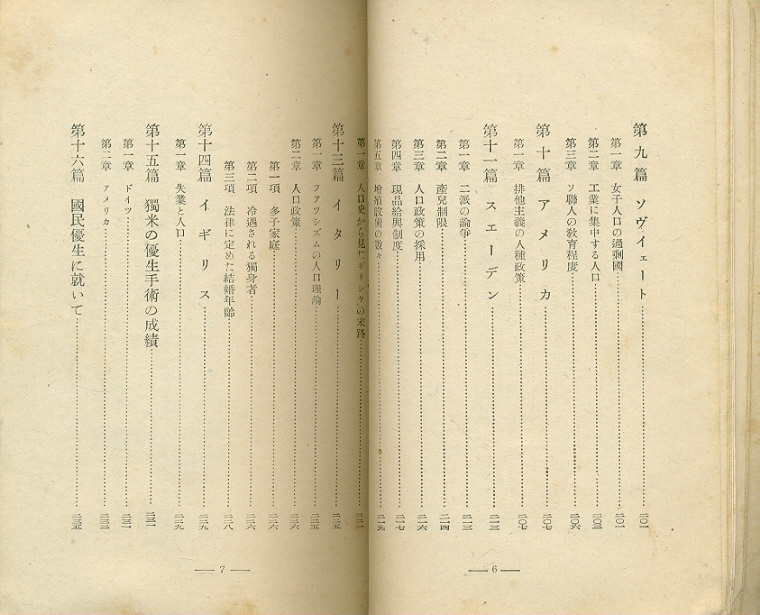 第九篇 ソヴィェート 二〇一
第一章 女子人口の過剩國 二〇一
第二章 工業に集中する人口 二〇三
第三章 ソ聯人の敎育程度 二〇六
第十篇 アメリカ 二〇七
第一章 排他主義の人種政策 二〇七
第十一篇 スエーデン 二一三
第一章 二派の論爭 二一三
第二章 產兒制限 二一四
第三章 人口政策の採用 二一六
第四章 現品給與制度 二一七
第五章 增殖設備の數々 二一九
— 6 —
第一章 人口史から見たギリシャの末路 二二一
第十三篇 イタリー 二二五
第一章 フアツシズムの人口理論 二二五
第二章 人口政策 二二六
第一項 多子家庭 二二六
第二項 冷遇される獨身者 二二六
第三項 法律に定めた結婚年齡 二二八
第十四篇 イギリス 二二九
第一章 失業と人口 二二九
第十五篇 獨米の優生手術の成績 二三一
第一章 ドイツ 二三一
第二章 アメリカ 二三三
第十六篇 國民優生に就いて 二三五
— 7 —